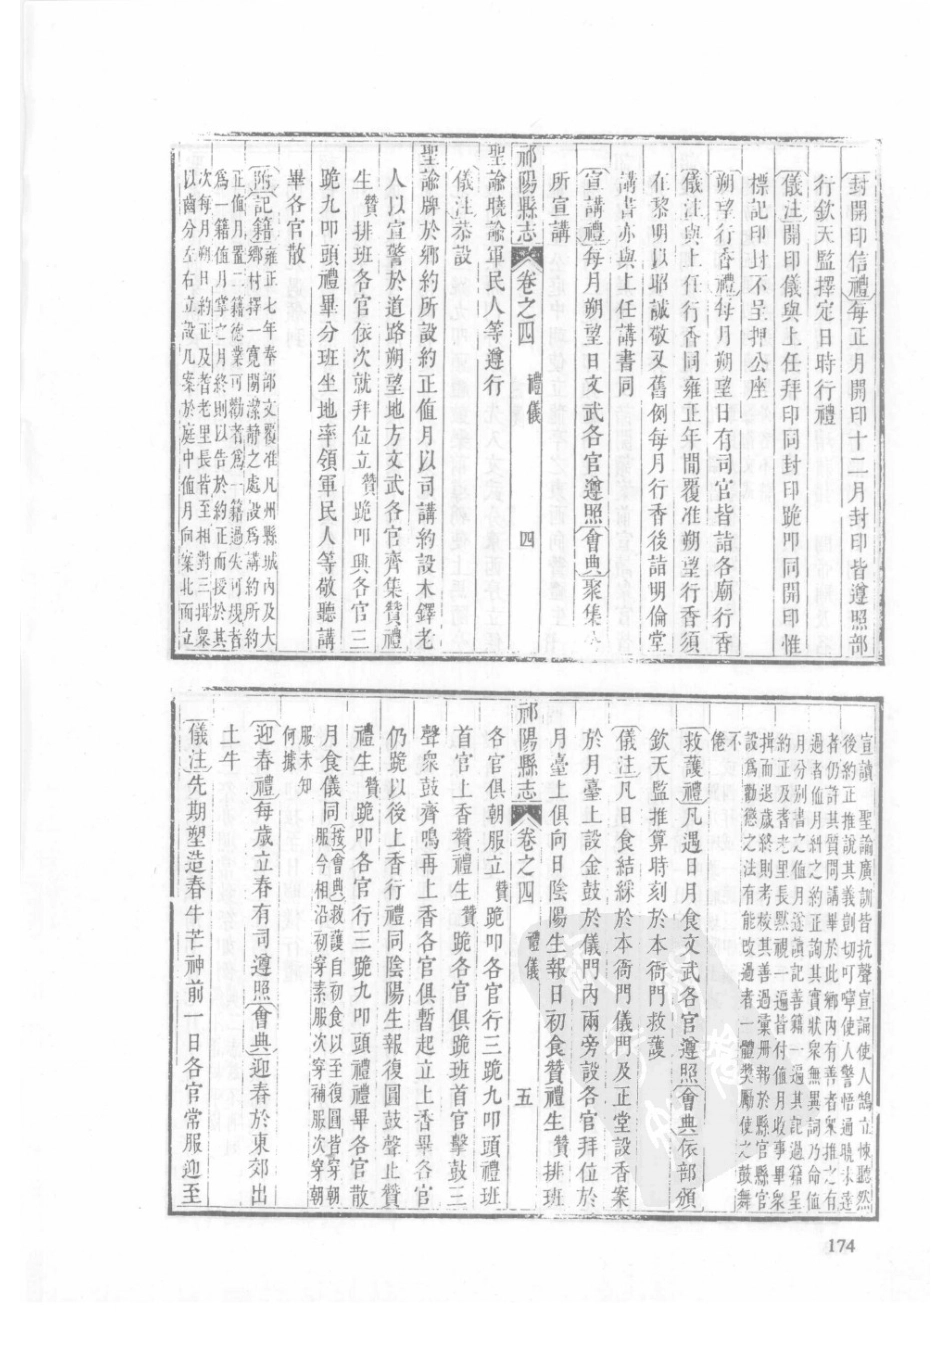 封開印信禮每正月開印十二月封印皆遵照部
行欽天監擇定日時行禮
儀注開印儀與上任拜印同封印跪叩同開印惟
標記印封不呈押公座
朔望行香禮每月朔望日有司官皆詣各廟行香
儀注與上任行香同雍正年間覆准朔望行香須
在黎明以昭誠敬又舊例每月行香後詣明倫堂
講書亦與上任講書同
宣講禮每月朔望日文武各官遵照會典聚集公
所宣講
祁陽縣志 卷之四 禮儀 四
聖諭曉諭軍民人等遵行
儀注恭設
聖諭牌於鄉約所設約正值月以司講約設木鐸老
人以宣警於道路朔望地方文武各官齊集贊禮
生贊排班各官依次就拜位立贊跪叩興各官三
跪九叩頭禮畢分班坐地率領軍民人等敬聽講
畢各官散
附記籍雍正七年奉部文覆准凡州縣城內及大
鄉村擇一寬闊潔靜之處設為講約所約
正值月置二籍德業可勸者為一籍過失可規者
為一籍值月掌之月終則以告於約正而授於其
次每月朔日約正及耆老里長皆至相對三揖眾
以齒分左右立設几案於庭中值月向案北面立
宣讀 聖諭廣訓皆抗聲宣誦使人鵠立悚聽然
後約正推說其義剴切叮嚀使人警悟通曉未達
者仍許其質問講畢於此鄉內有善者眾推之有
過者值月糾之約正詢其實狀眾無異詞乃命值
月分別書之值月遂讀記善籍一遍其記過籍呈
約正及耆老里長默視一遍皆付值月收事畢眾
揖而退歲終則考校其善過彙冊報於縣官縣官
設為勸懲之法有能改過者一體獎勵使之鼓舞
不倦
救護禮凡遇日月食文武各官遵照會典依部頒
欽天監推算時刻於本衙門救護
儀注凡日食結綵於本衙門儀門及正堂設香案
於月臺上設金鼓於儀門內兩旁設各官拜位於
月臺上俱向日陰陽生報日初食贊禮生贊排班
祁陽縣志 卷之四 禮儀 五
各官俱朝服立贊跪叩各官行三跪九叩頭禮班
首官上香贊禮生贊跪各官俱跪班首官擊鼓三
聲眾鼓齊鳴再上香各官俱暫起立上香畢各官
仍跪以後上香行禮同陰陽生報復圓鼓聲止贊
禮生贊跪叩各官行三跪九叩頭禮禮畢各官散
月食儀同按會典救護自初食以至復圓皆穿朝
服今相沿初穿素服次穿補服次穿朝
服未知
何據
迎春禮每歲立春有司遵照會典迎春於東郊出
土牛
儀注先期塑造春牛芒神前一日各官常服迎至
174